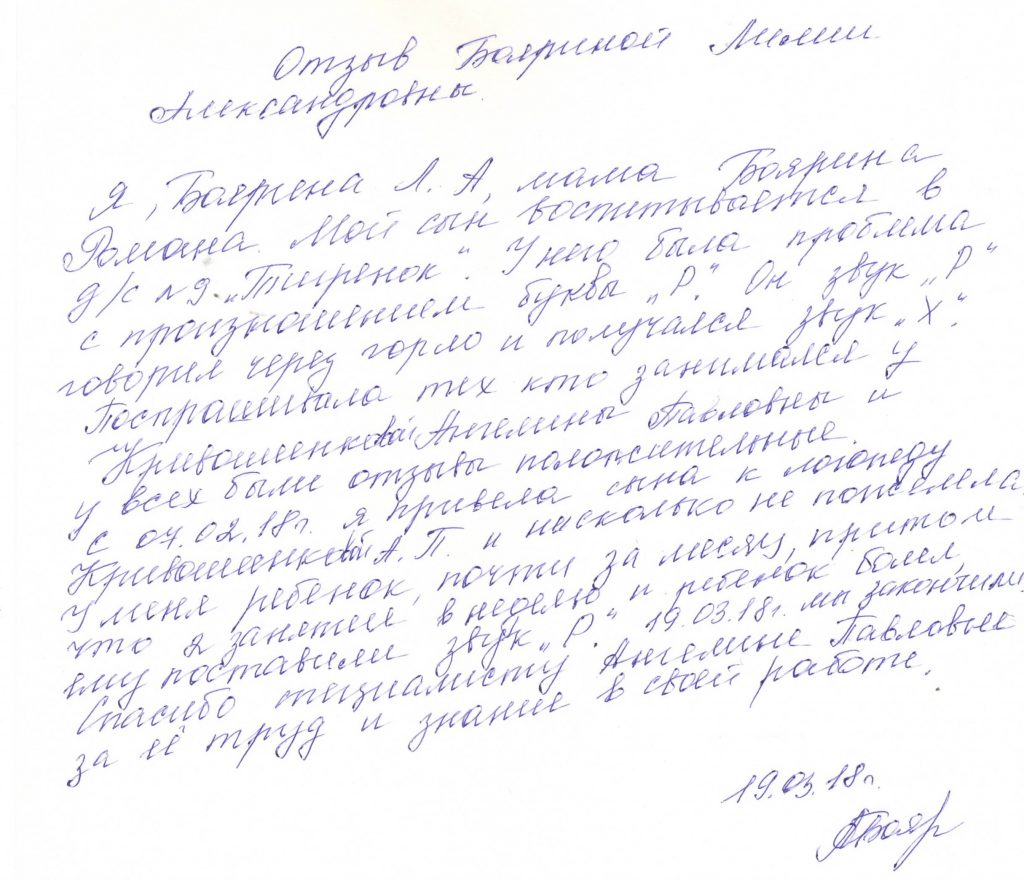 Отзыв Бояриной Лилии
Александровны.
Я, Боярина Л. А, мама Боярина
Романа. Мой сын воспитывается в
д/с №9 „Тигренок". У него была проблема
с произношением буквы „Р". Он звук „Р"
говорил через горло и получался звук „Х".
Поспрашивала тех кто занимался у
Кривошенковой Ангелины Павловны и
у всех были отзывы положительные.
с 07.02.18г. я привела сына к логопеду
Кривошенковой А. П. и нисколько не пожелела.
У меня ребенок, почти за месяц, притом
что 2 занятия в неделю и ребенок болел,
ему поставили звук „Р." 19.03.18г. мы закончили.
Спасибо специалисту Ангелине Павловне
за её труд и знание в своей работе.
19.03.18г.
ЛБояр